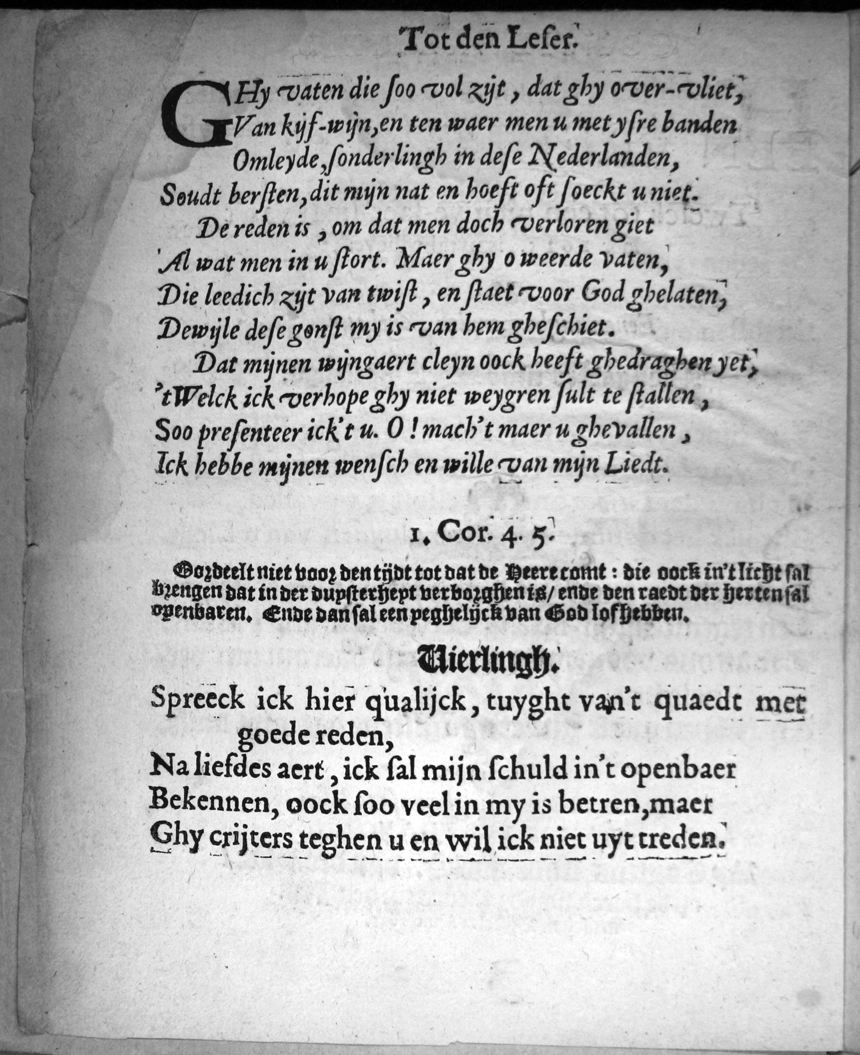 Tot den Leser.
GHy vaten die soo vol zijt, dat ghy over-vliet,
Van kijf-wijn, en ten waer men u met ysre banden
Omleyde, sonderlingh in dese Nederlanden,
Soudt bersten, dit mijn nat en hoeft oft soeckt u niet.
De reden is, om dat men doch verloren giet
Al wat men in u stort. Maer ghy o weerde vaten,
Die leedich zijt van twist, en staet voor God ghelaten,
Dewijle dese gonst my is van hem gheschiet.
Dat mijnen wijngaert cleyn oock heeft ghedraghen yet,
'tWelck ick verhope ghy niet weygren sult te stallen,
Soo presenteer ick't u. O! mach't maer u ghevallen,
Ick hebbe mijnen wensch en wille van mijn Liedt.
1. Cor. 4. 5.
Oordeelt niet voor den tijdt tot dat de Heere comt: die oock in't licht sal
brengen dat in der duysterheyt verborghen is/ ende den raedt der herten sal
openbaren. Ende dan sal een yeghelijck van God lof hebben.
Vierlingh.
Spreeck ick hier qualijck, tuyght van't quaedt met
goede reden,
Na liefdes aert, ick sal mijn schuld in't openbaer
Bekennen, oock soo veel in my is betren, maer
Ghy crijters teghen u en wil ick niet uyt treden.